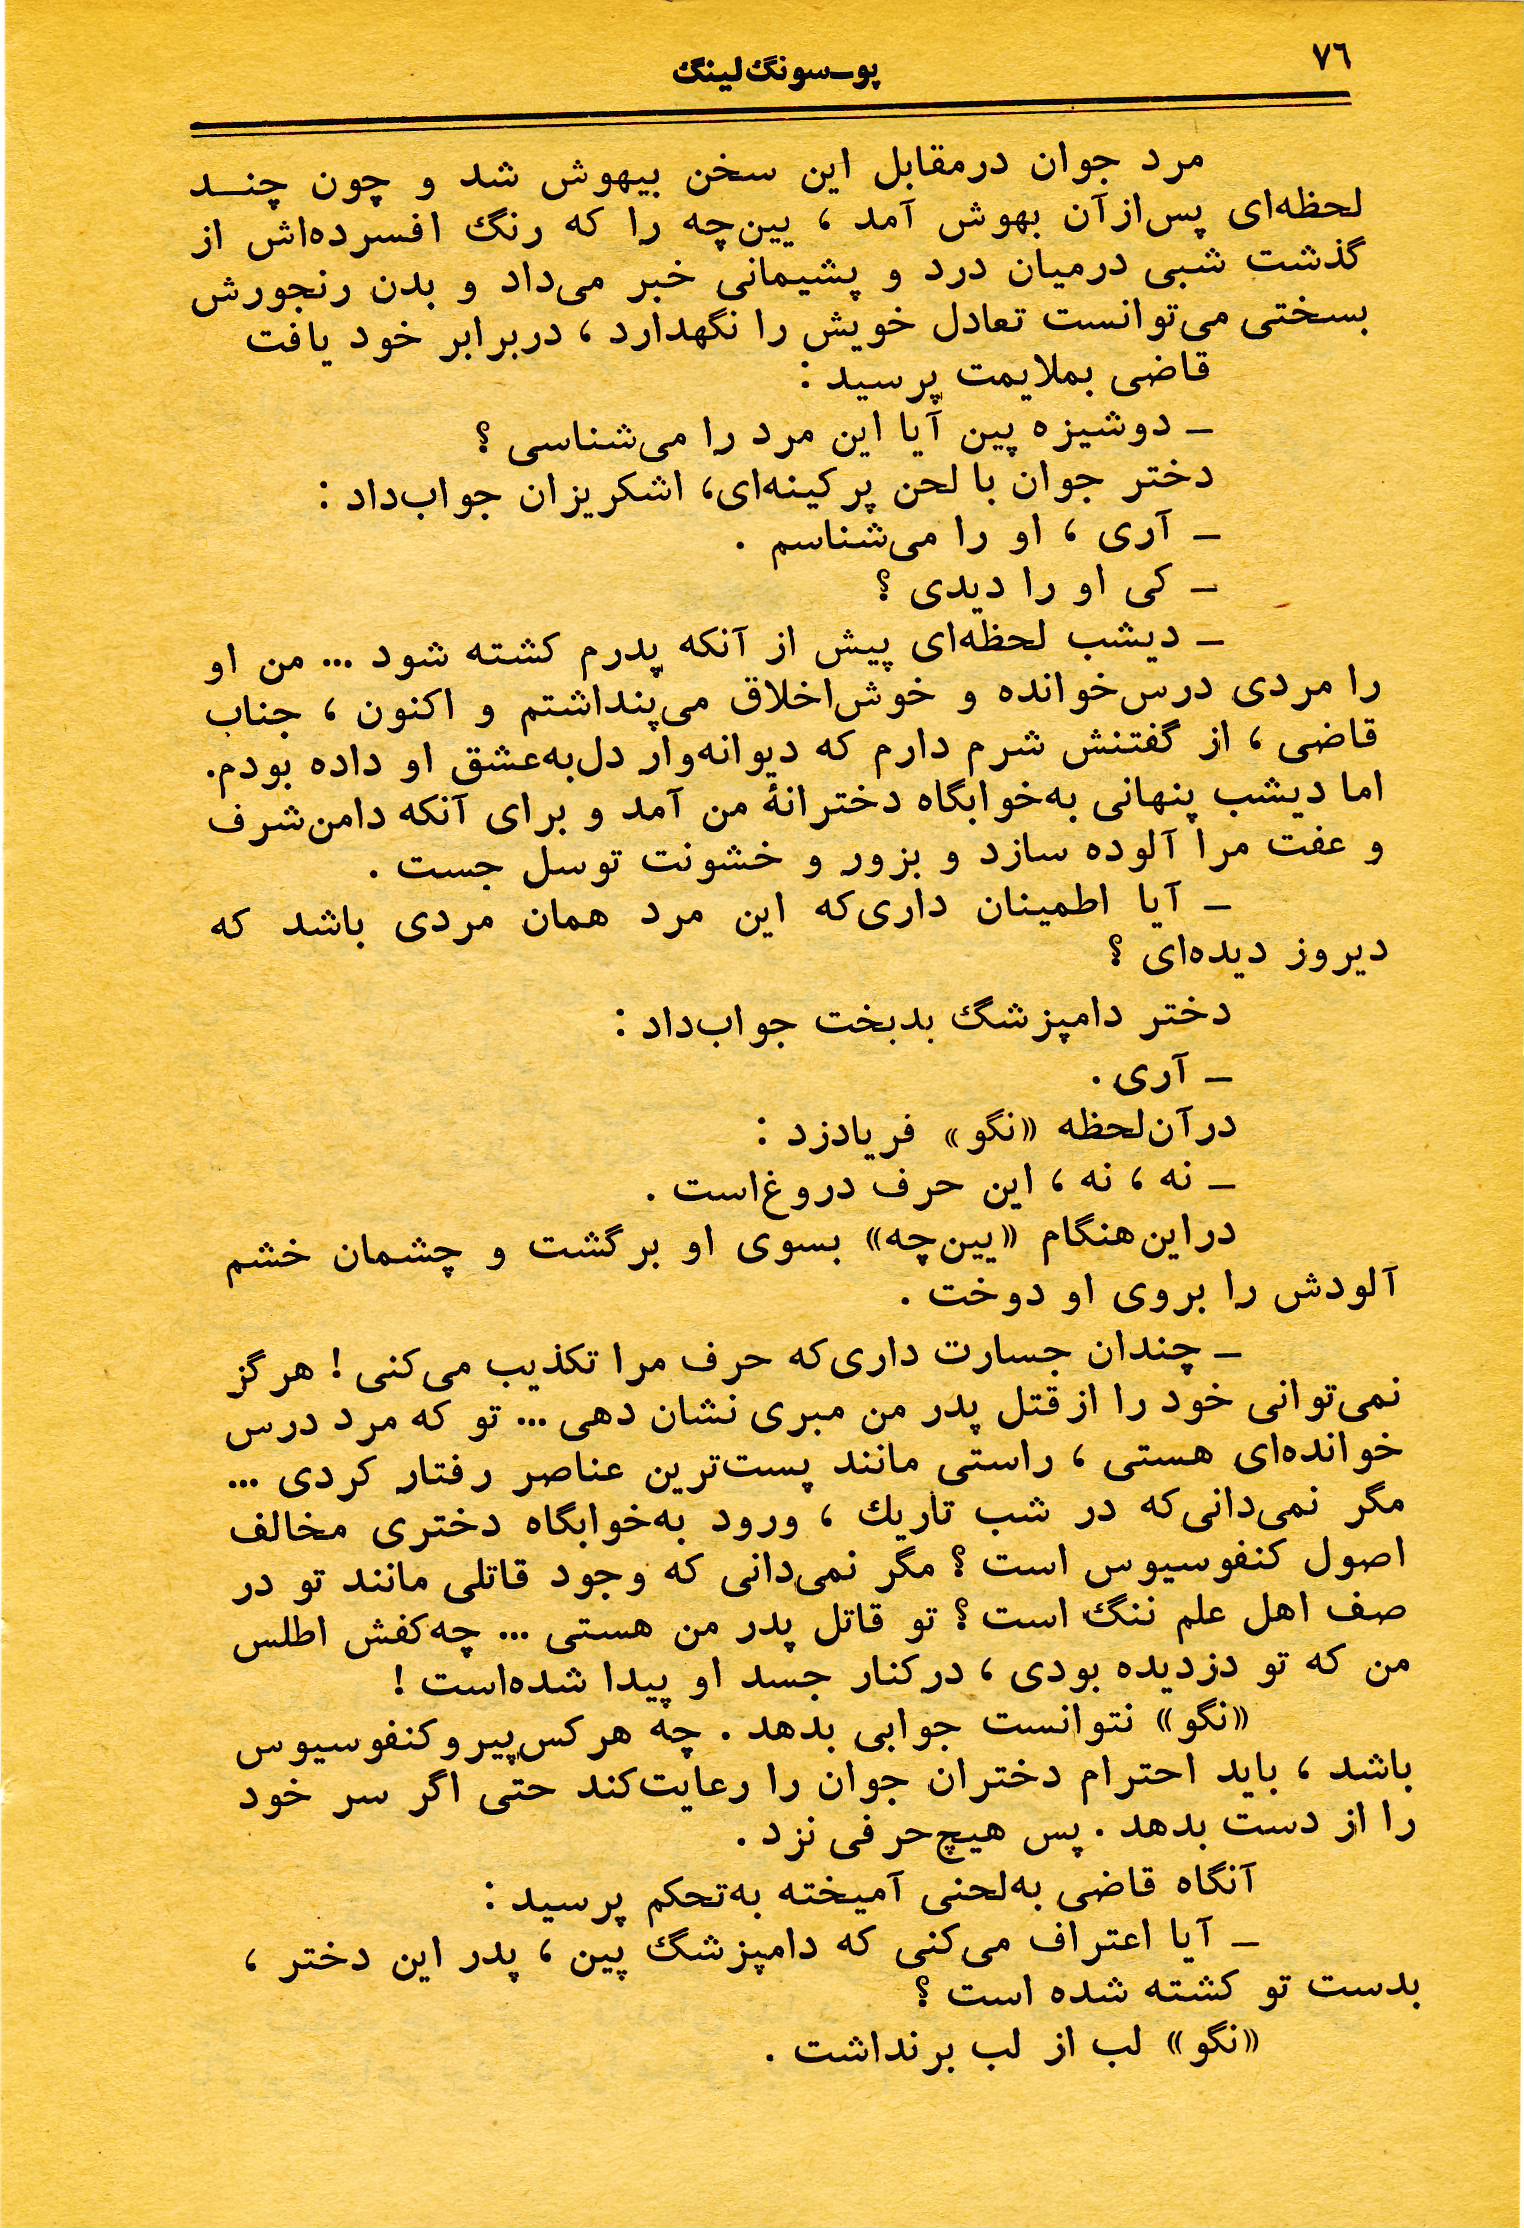 ۷۶
پو_سونگ‌لینگ
مرد جوان درمقابل این سخن بیهوش شد و چون چنــد
لحظه‌ای پس‌ازآن بهوش آمد ، یین‌چه را که رنگ افسرده‌اش از
گذشت شبی درمیان درد و پشیمانی خبر می‌داد و بدن رنجورش
بسختی می‌توانست تعادل خویش را نگهدارد ، دربرابر خود یافت
قاضی بملایمت پرسید :
_ دوشیزه پین آیا این مرد را می‌شناسی ؟
دختر جوان با لحن پرکینه‌ای، اشکریزان جواب‌داد :
_ آری ، او را می‌شناسم .
_ کی او را دیدی ؟
_ دیشب لحظه‌ای پیش از آنکه پدرم کشته شود ... من او
را مردی درس‌خوانده و خوش‌اخلاق می‌پنداشتم و اکنون ، جناب
قاضی ، از گفتنش شرم دارم که دیوانه‌وار دل‌به‌عشق او داده بودم.
اما دیشب پنهانی به‌خوابگاه دخترانهٔ من آمد و برای آنکه دامن‌شرف
و عفت مرا آلوده سازد و بزور و خشونت توسل جست .
_ آیا اطمینان داری‌که این مرد همان مردی باشد که
دیروز دیده‌ای ؟
دختر دامپزشگ بدبخت جواب‌داد :
_ آری .
درآن‌لحظه «نگو» فریادزد :
_ نه ، نه ، این حرف دروغ‌است .
دراین‌هنگام «یین‌چه» بسوی او برگشت و چشمان خشم
آلودش را بروی او دوخت .
_ چندان جسارت داری‌که حرف مرا تکذیب می‌کنی ! هرگز
نمی‌توانی خود را ازقتل پدر من مبری نشان دهی ... تو که مرد درس
خوانده‌ای هستی ، راستی مانند پست‌ترین عناصر رفتار کردی ...
مگر نمی‌دانی‌که در شب تاریك ، ورود به‌خوابگاه دختری مخالف
اصول کنفوسیوس است ؟ مگر نمی‌دانی که وجود قاتلی مانند تو در
صف اهل علم ننگ است ؟ تو قاتل پدر من هستی ... چه‌کفش اطلس
من که تو دزدیده بودی ، درکنار جسد او پیدا شده‌است !
«نگو» نتوانست جوابی بدهد . چه هرکس‌پیروکنفوسیوس
باشد ، باید احترام دختران جوان را رعایت‌کند حتی اگر سر خود
را از دست بدهد . پس هیچ‌حرفی نزد .
آنگاه قاضی به‌لحنی آمیخته به‌تحکم پرسید :
_ آیا اعتراف می‌کنی که دامپزشگ پین ، پدر این دختر ،
بدست تو کشته شده است ؟
«نگو» لب از لب برنداشت .